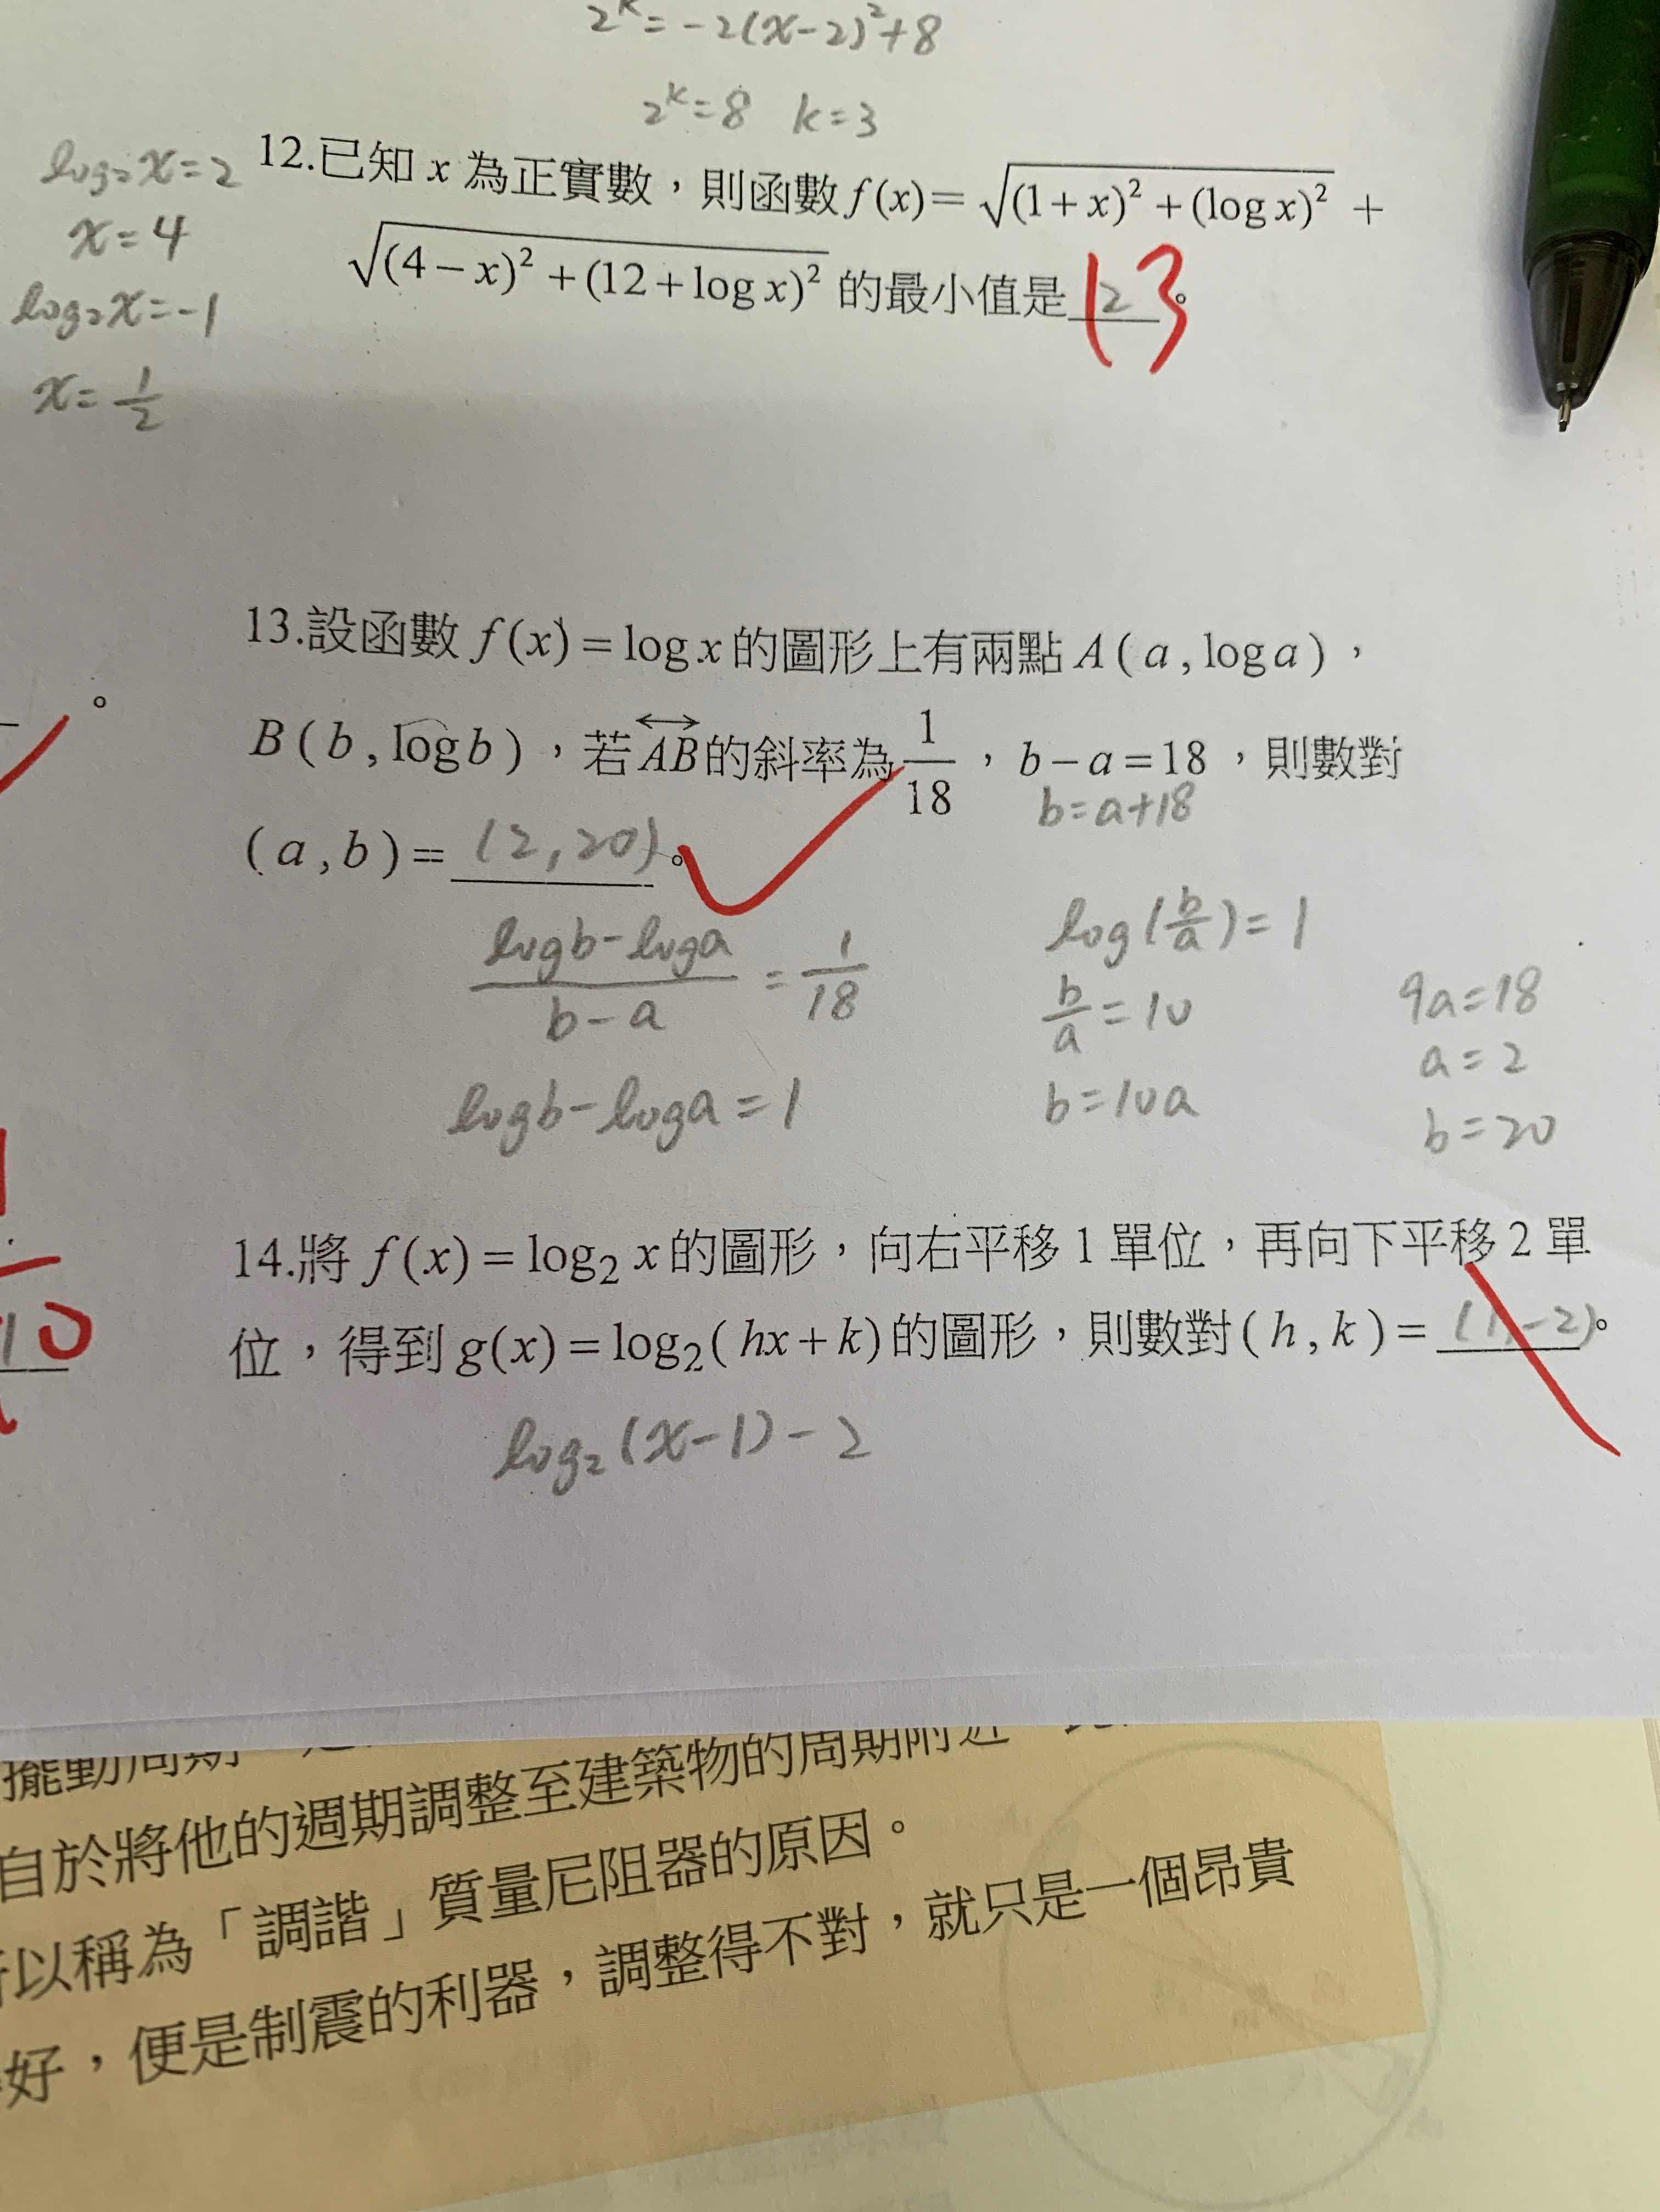 2^k = -2(x-2)²+8
2^k=8 k=3
log₂x=2
x=4
log₂x=-1
x=1/2
12.已知 x 為正實數，則函數 f(x)=√((1+x)²+(log x)²) +
√((4-x)²+(12+log x)²) 的最小值是 2 。
13
13.設函數 f(x)=log x 的圖形上有兩點 A(a,log a)，
B(b,log b)，若 AB 的斜率為 1/18，b-a=18，則數對
b=a+18
(a,b)= (2,20) 。
(logb-loga)/(b-a) = 1/18
logb-loga=1
log(b/a)=1
b/a=10
b=10a
9a=18
a=2
b=20
14.將 f(x)=log₂ x 的圖形，向右平移 1 單位，再向下平移 2 單
位，得到 g(x)=log₂(hx+k) 的圖形，則數對 (h,k)= (1,-2) 。
log₂(x-1)-2
。
10
擺動周期
自於將他的週期調整至建築物的周期附近
以稱為「調諧」質量尼阻器的原因。
好，便是制震的利器，調整得不對，就只是一個昂貴